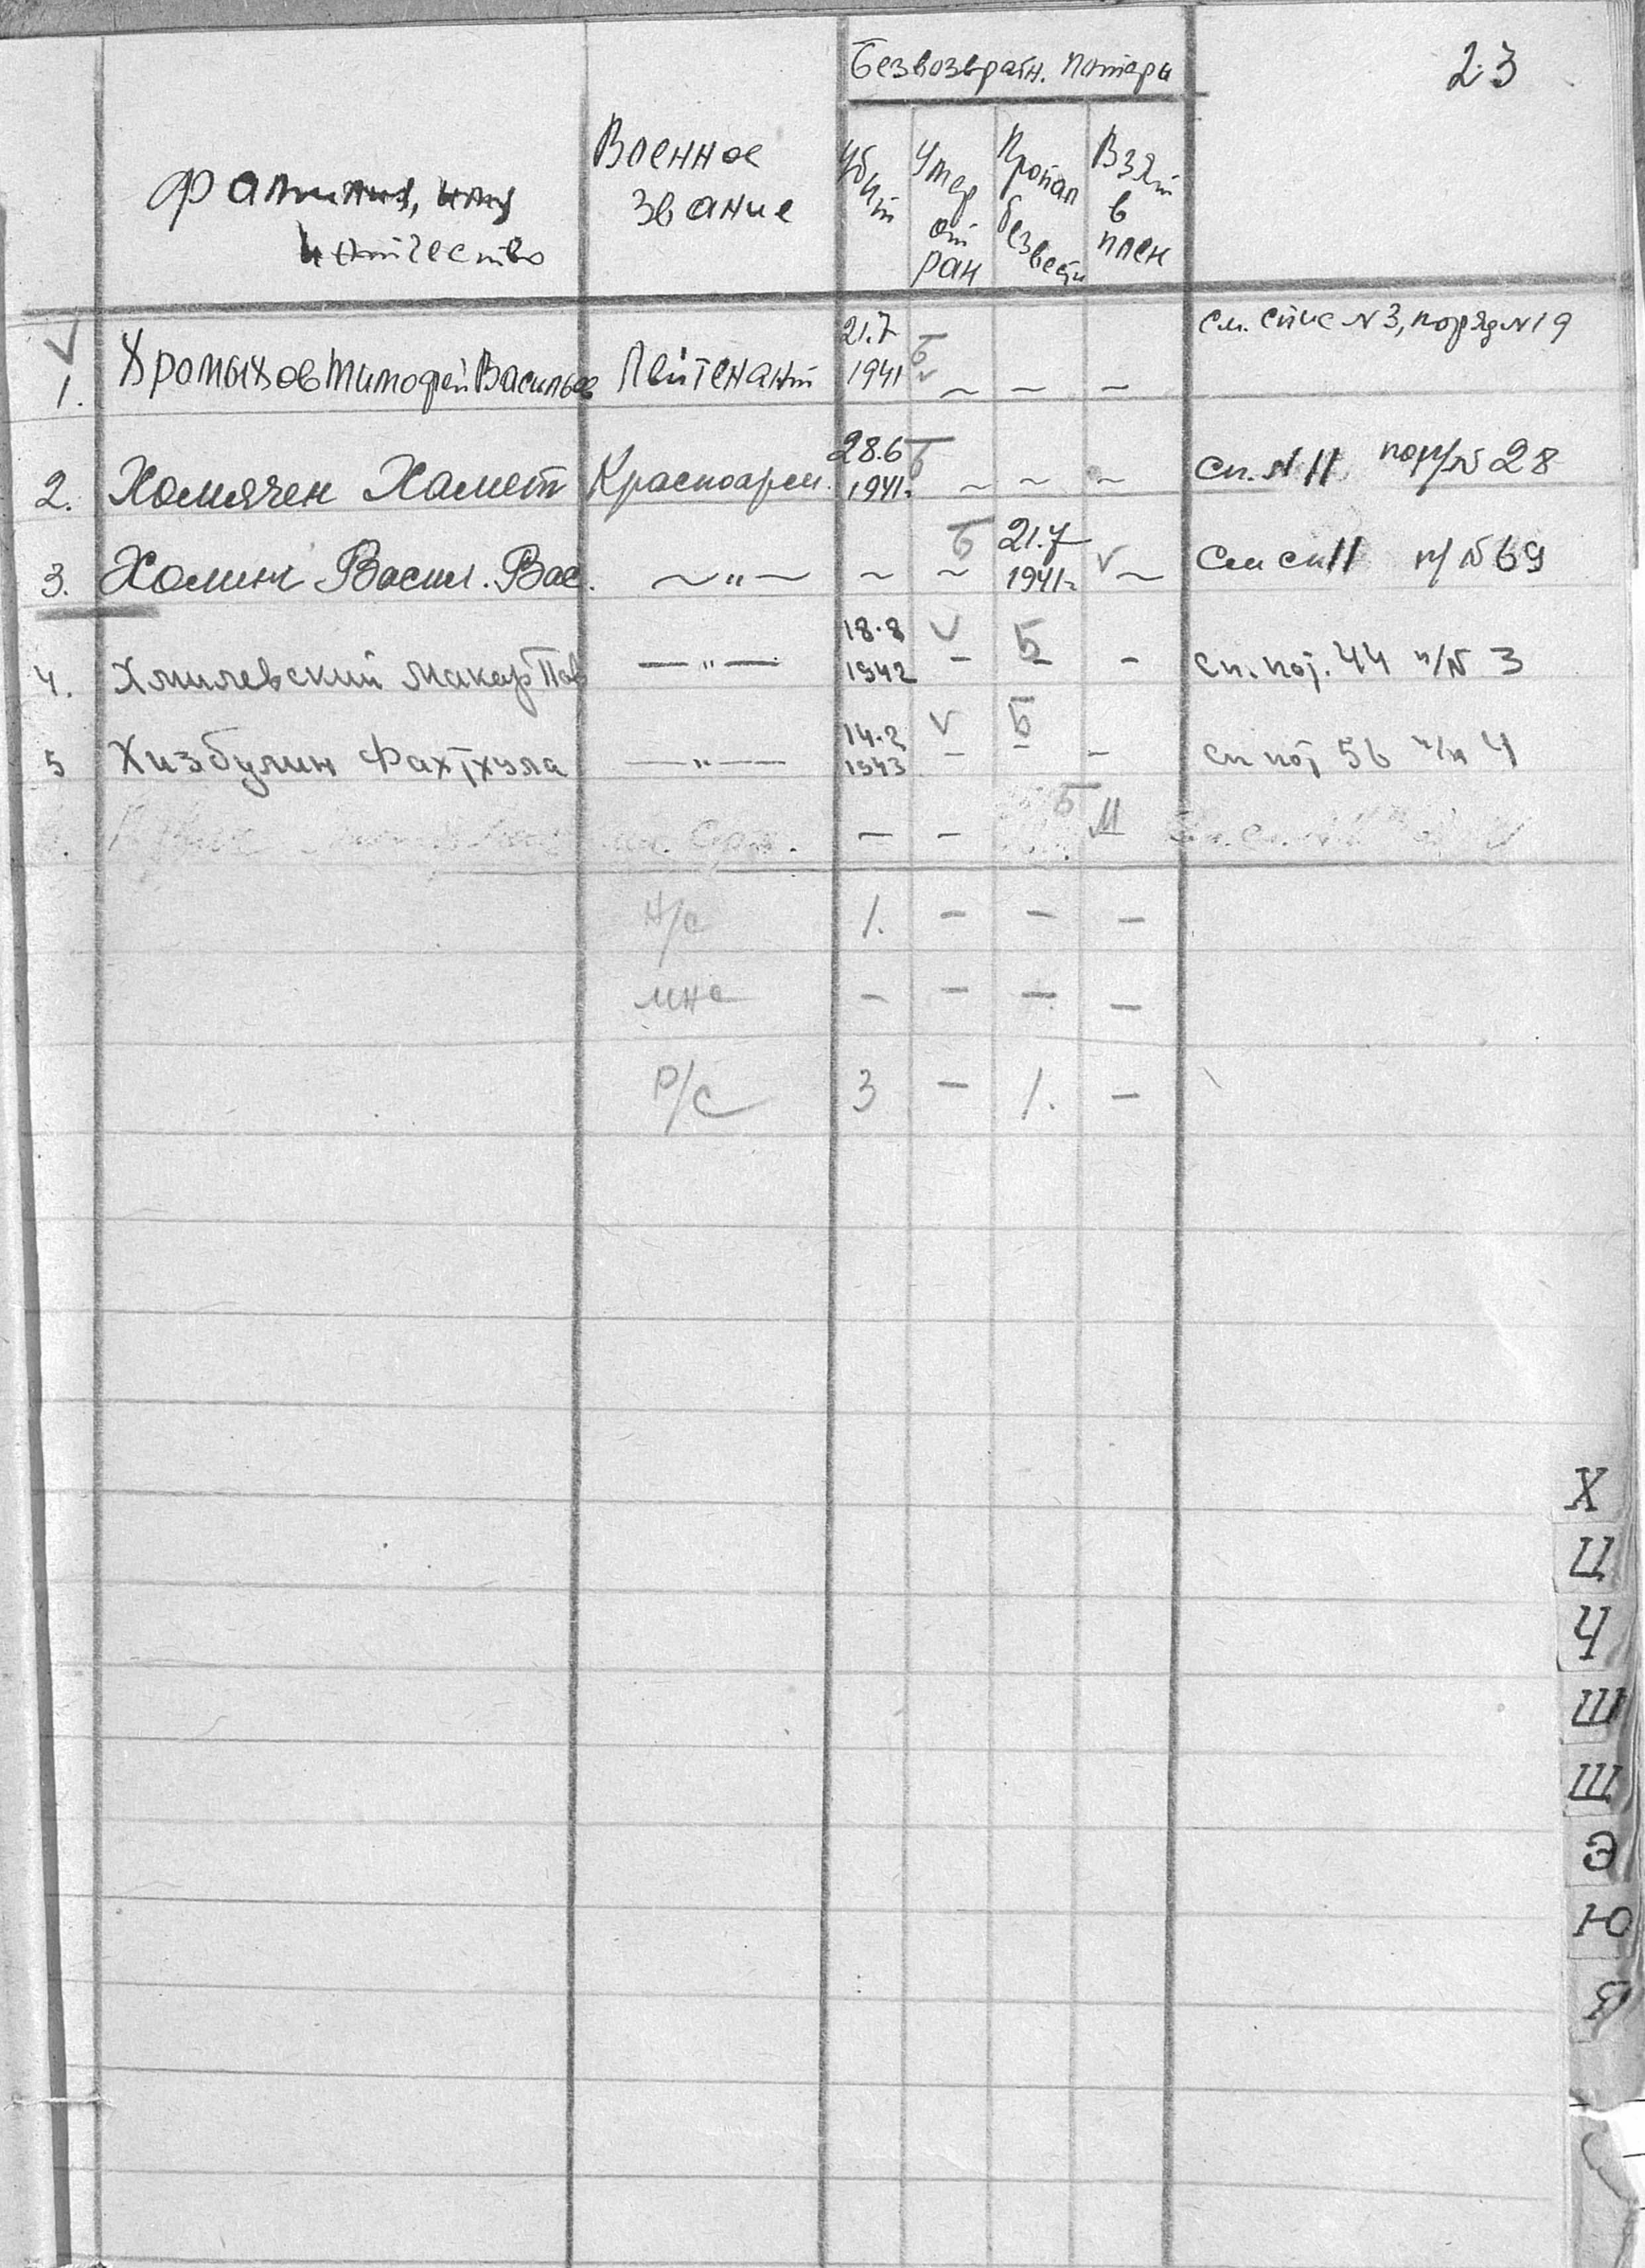 23
Безвозвратн. потери
Фамилия, имя и отчество
Военное звание
Убит
Умер от ран
Пропал безвести
Взят в плен
1. Хромыхов Тимофей Васильев Лейтенант 21.7 1941 Б ~ — — См. спис N 3, поряд N 19
2. Холиячен Хамет Красноарм. 28.6 1941г. Б ~ ~ ~ Сп. N 11 пор/№ 28
3. Холин Васил. Вас. ~"~ ~ ~ Б 21.7 1941г. ~ См сп 11 п/№ 69
4. Хмилевский Макар Пав —"— 18.8 1942 — Б — — сп. пот. 44 п/№ 3
5 Хизбулин Фахтхула —"— 14.2 1943 — Б — — сп пот 56 п/№ 4
— — Б
Н/с 1. — — —
мнс — — — —
Р/С 3 — 1. —
Х
Ц
Ч
Ш
Щ
Э
Ю
Я